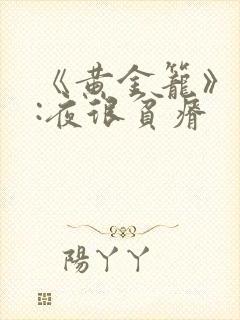 《黄金籠》
:夜很貧瘠
陽丫丫